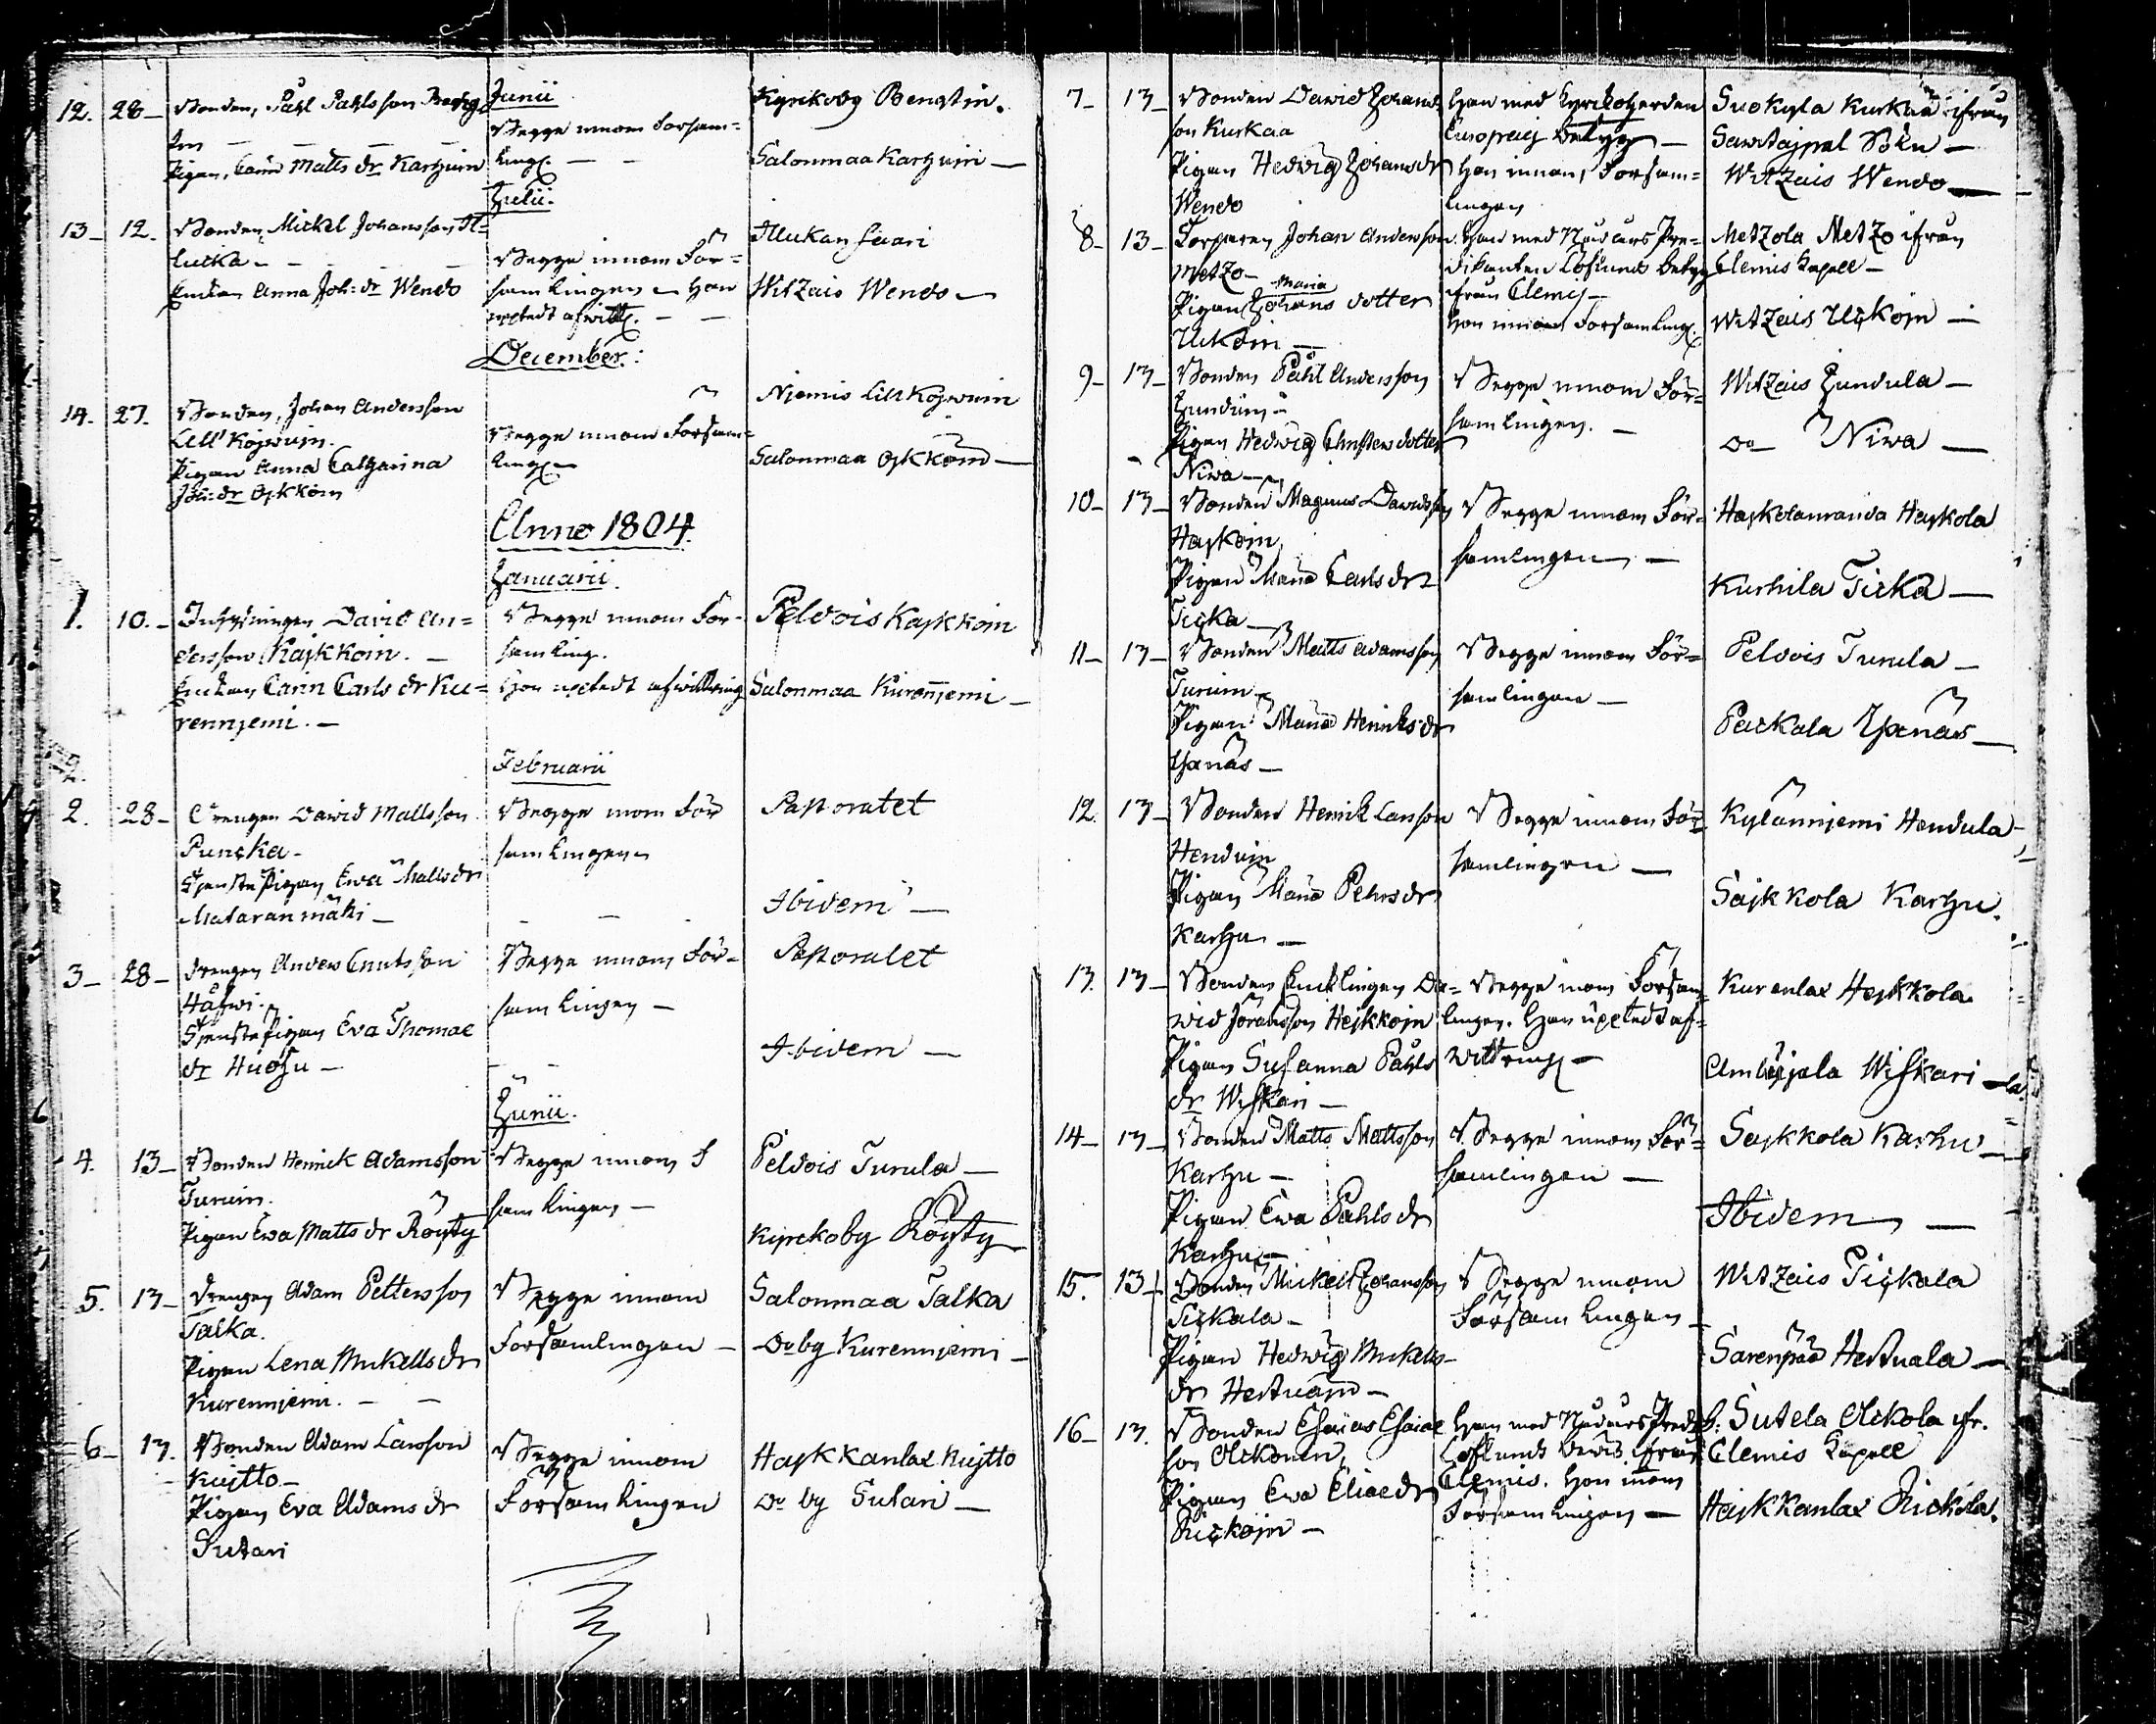 Junii
12. 28 — Bonden, Påhl Pahlsson Bengt-
in — — — —
Pigan, Carin Matts dr Karhuin
Begge innom Forsam=
ling. — —
Kyrkoby Bengtin.
Salonmaa Karhuin —
Julii.
13 — 12. Bonden, Mickel Johansson Il=
lucka — — —
Enckan Anna Joh: dr Wendo
Begge innom För=
samlingen — Hon
uptedt afwittr. — —
Illukan saari
Witzais Wendo —
December:
14. 27. Bonden, Johan Andersson
Lill Kojwuin.
Pigan Anna Catharina
Joh: dr Ojkkoin
Begge innom Forsam=
ling. —
Njemis Lill Kojwuin
Salonmaa Ojkkoin —
Anno 1804.
Januarii.
1. 10. — Inhysingen David An=
dersson Kajkkoin. —
Enckan Carin Carls dr Ku=
rennjemi. —
Begge innom För-
samling.
Hon uptedt afwittring
Peldois Kajkkoin
Salonmaa Kurennjemi —
Februarii
2. 28 — Drengen David Mattsson
Puncka —
Tjenste Pigan Ewa Matts dr
Mataranmäki —
Begge inom För
samlingen
Pastoratet
Ibidem —
3 — 28 — Drengen Anders Cnutsson
Häfwi.
Tjenstepigan Eva Thomae
dr Huohu —
Begge innom För-
samlingen —
Pastoratet
Ibidem —
Junii.
4. 13 — Bonden Henrick Adamsson
Turuin.
Pigan Ewa Matts dr Röysty
Begge innom F
samlingen —
Peldois Turula —
Kyrckoby Röysty
5. 13 — Drengen Adam Pettersson
Talka.
Pigan Lena Mickells dr
Kurennjemi. — —
Begge innom
Forsamlingen —
Salonmaa Talka
Do by Kurennjemi —
6 — 13. Bonden Adam Larsson
Kujtto —
Pigan Eva Adams dr
Sutari
Begge innom
Församlingen
Hajkkanlax Kujtto
Do by Sutari —
7 — 13 — Bonden Dawid Johans
son Kurkaa
Pigan Hedwig Johans dr
Wendo
Han med Kyrckoherden
Europaei betyg —
Hon innom Forsam=
lingen
Suokyla Kurkaa ifrån
Sawitajpal Sökn —
Witzais Wendo —
8 — 13 — Torparen Johan Andersson
Metzo —
Maria
Pigan Johans dotter
Uckoin —
Han med Nåd års Pre=
dikanten Löflunds betyg
från Clemis —
Hon innom Forsamling.
Metzola Metzo ifrån
Clemis Kapell —
Witzais Uckoin —
9 — 13 — Bonden Påhl Andersson
Junduin —
Pigan Hedwig Christers dotter
Niwa —
Begge innom För=
samlingen. —
Witzais Jundula —
Do Niwa —
10 — 13 — Bonden Magnus Davidsson
Hajkoin
Pigan Maria Carls dr
Ticka —
Begge innom För=
samlingen —
Hajkolanranda Hajkola
Kurhila Ticka —
11 — 13 — Bonden Matts Adamsson
Turuin —
Pigan Maria Henricks dr
Upanäs —
Begge innom För=
samlingen —
Peldois Turula —
Packala Upanäs —
12. 13 — Bonden Henrik Larsson
Henduin
Pigan Maria Pehrs dr
Karhu —
Begge innom För=
samlingen —
Kylännjemi Hendula —
Sajkkola Karhu.
13. 13 — Bonden Encklingen Da=
wid Joransson Hejkkojn
Pigan Susanna Påhls
dr Wiskari —
Begge inom Forsam=
lingen. Han uptedt af=
wittring —
Kurenlax Hejkkola
Ambujala Wiskari —la
14 — 13 — Bonden Matts Mattsson
Karhu —
Pigan Ewa Pahls dr
Karhu —
Begge innom För=
samlingen —
Sajkkola Karhu —
Ibidem —
15. 13 — Bonden Mickel Johansson
Pickala —
Pigan Hedwig Mickels
dr Hertuain —
Begge innom
Församlingen —
Witzais Pickala
Sarenpää Hertuala —
16 — 13. Bonden Esaias Esaiae
son Ackonen,
Pigan Ewa Eliae dr
Rickojn —
Han med Nådårs Pred.
Löfflunds bewis ifrån
Clemis. Hon inom
Församlingen —
Sutela Ackola ifr.
Clemis Kapell
Hajkkanlax Rickola.